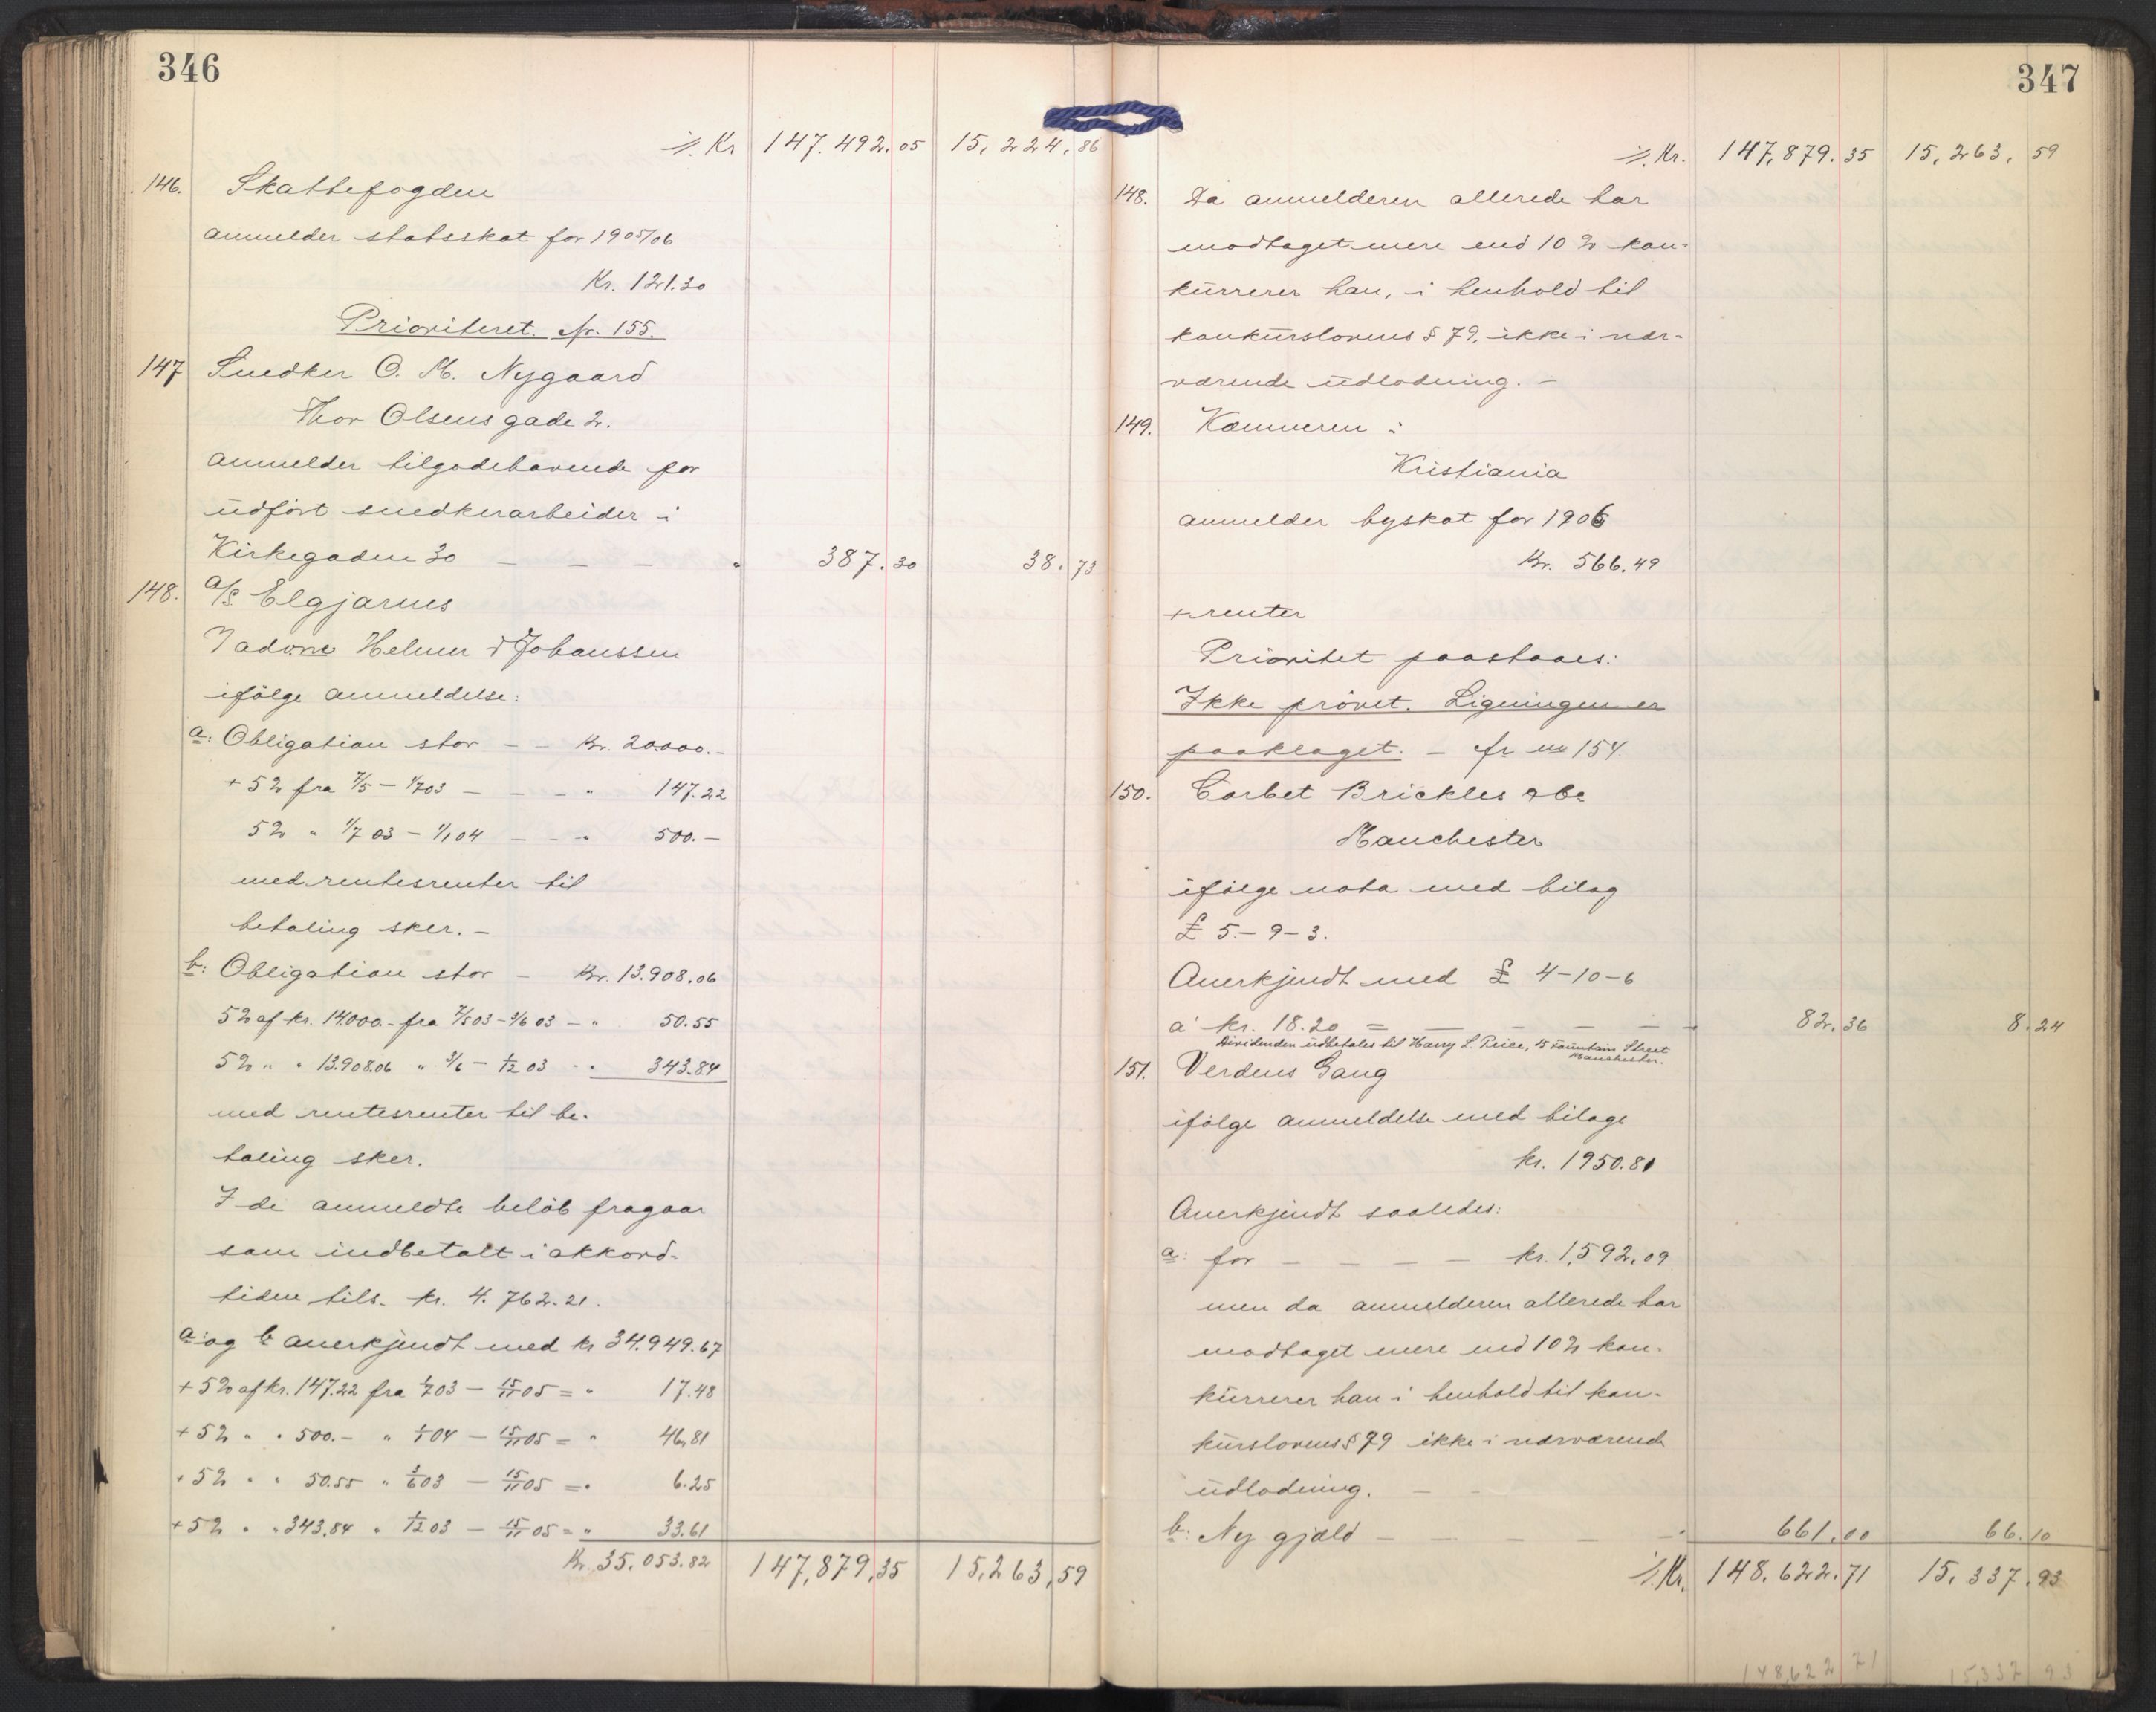 346
./. Kr 147.492.05 15,224.86
146. Skattefogden
anmelder statsskat for 1905/06
Kr. 121.20
Prioriteret. Nr. 155.
147 Snedker O. M. Nygaard
Thor Olsens gade 2.
anmelder tilgodehavende for
udført snedkerarbeider i
Kirkegaden 30 — — — " 387.30 38.73
148. a/s Elgjarnes
v/ adv.ne Helmer & Johanssen
ifølge anmeldelse:
a: Obligation stor — — Kr. 20.000.-
+ 5% fra 7/5 – 1/7 03 — — — " 147.22
5% " 1/7 03 – 1/1 04 — — " 500.—
med rentesrenter til
betaling sker. —
b: Obligation stor — Kr. 13.908.06
5% af kr. 14.000.- fra 7/5 03 – 3/6 03 — " 50.55
5% " " 13.908.06 " 3/6 – 1/12 03 " " 343.84
med rentesrenter til be-
taling sker.
I de anmeldte beløb fragaar
som indbetalt i akkord-
tiden tils. kr. 4.762.21.
a: og b anerkjendt med kr 34.949.67
+ 5% af kr. 147.22 fra 1/7 03 – 15/11 05 = " 17.48
+ 5% " " 500.— " 1/1 04 – 15/11 05 = " 46,81
+ 5% " " 50.55 " 3/6 03 – 15/11 05 = " 6.25
+ 5% " " 343.84 " 1/12 03 – 15/11 05 = " 33.61
Kr. 35,053.82 147,879,35 15,263,59
347
./. Kr. 147,879.35 15,263,59
148. Da anmelderen allerede har
modtaget mere end 10% kon-
kurrerer han, i henhold til
konkurslovens § 79, ikke i nær-
værende udlodning. —
149. Kæmneren i
Kristiania
anmelder byskat for 1906
Kr. 566.49
+ renter
Prioritet paastaaes:
Ikke prøvet. Ligningen er
paaklaget. — fr 154.
150. Corbet Brickles & Co
Manchester
ifølge nota med bilag
£ 5.-9-3.
Anerkjendt med £ 4-10-6
a' kr. 18.20 = — — — — 82,36 8.24
Dividenden udbetales til Harry L. Price, 15 Fountain Street
Manchester.
151. Verdens Gang
ifølge anmeldelse med bilage
kr. 1950.81
Anerkjendt saaledes:
a: for — — — — kr. 1,592,09
men da anmelderen allerede har
modtaget mere end 10% kon-
kurrerer han i henhold til kon-
kurslovens § 79 ikke i nærværende
udlodning. — —
b: Ny gjæld — — — — — " 661.00 66.10
./. Kr. 148.622.71 15,337.93
148,622 71 15,337 93